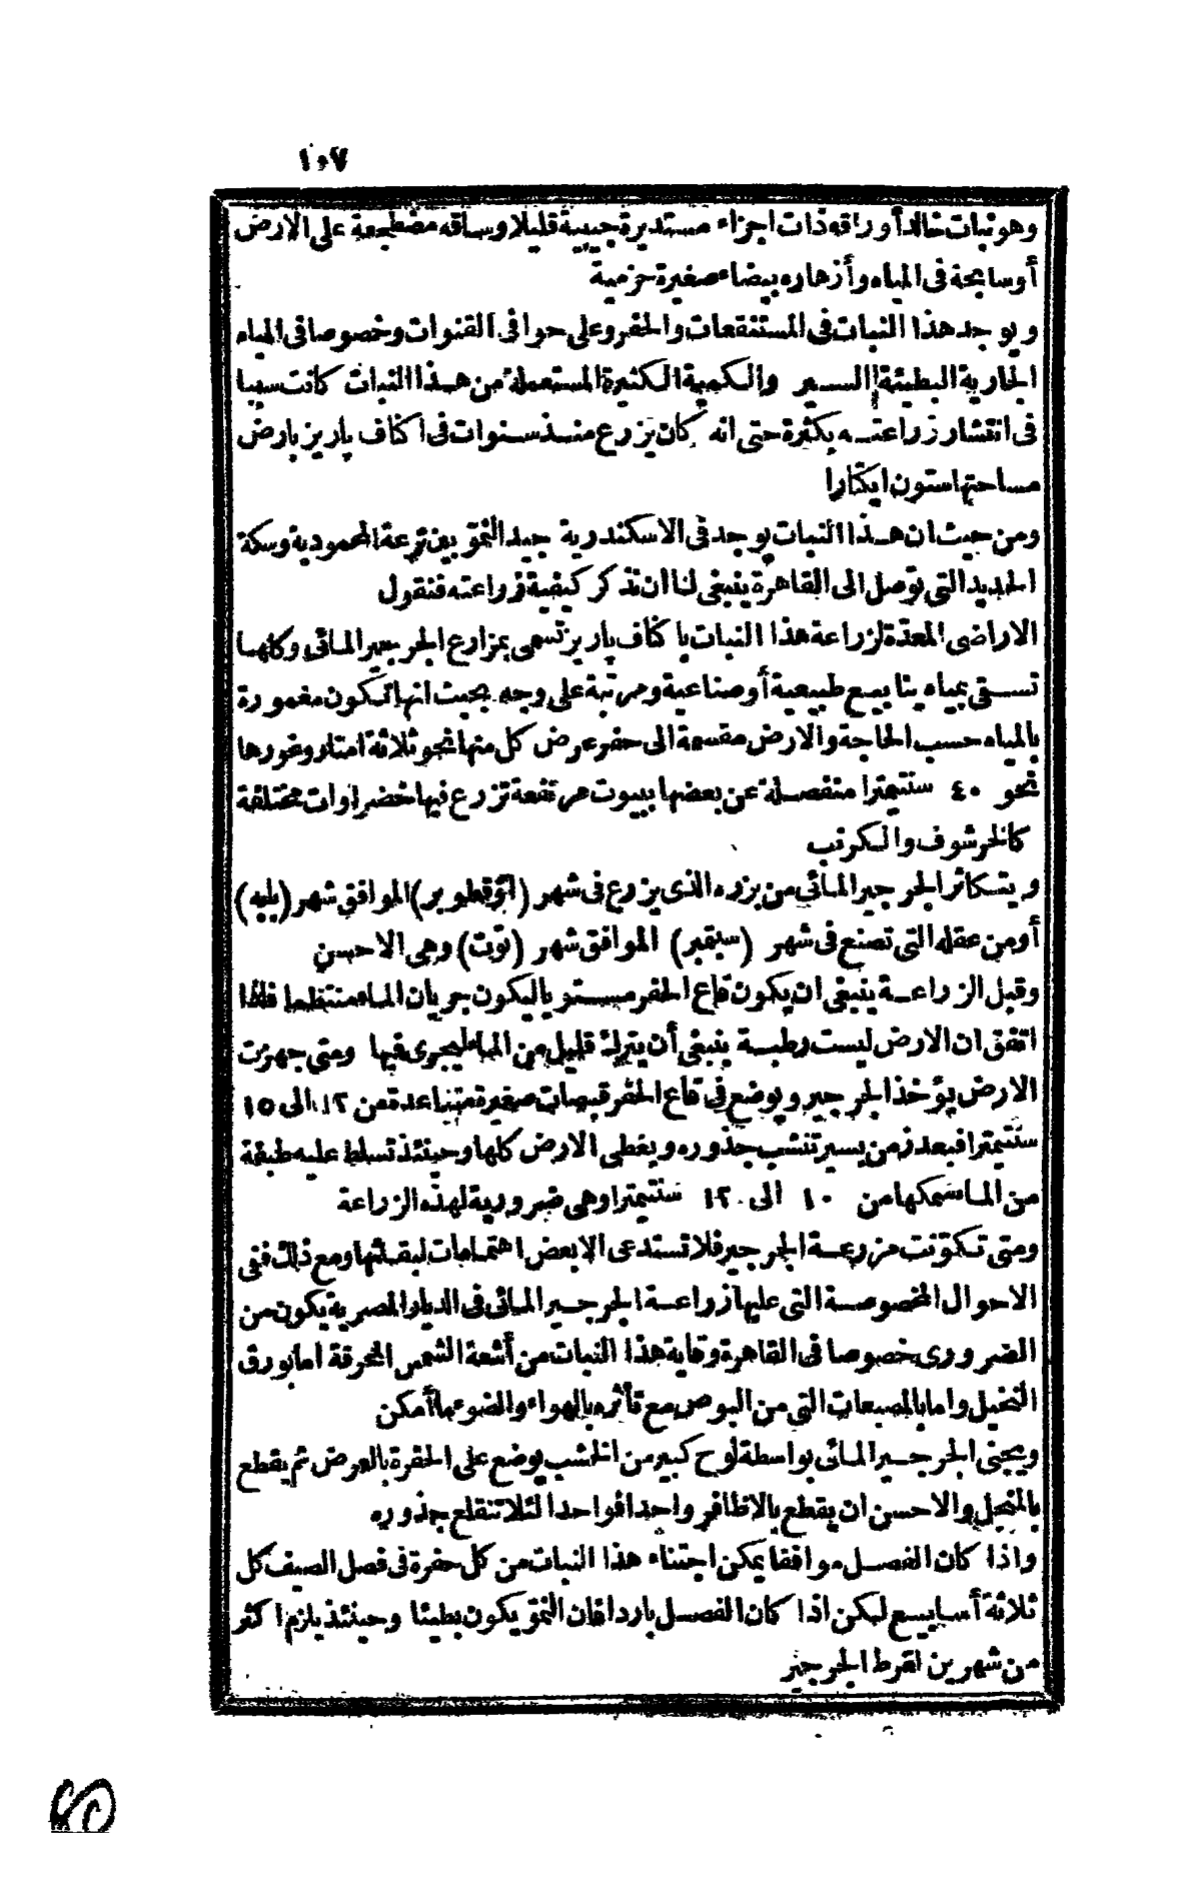 ١٠٧
وهو نبات خالد أوراقه ذات اجزاء مستديرة جيبية قليلا وساقه مضطجعة على الارض
أو سابحة فى المياه وأزهاره بيضاء صغيرة حزمية
ويوجد هذا النبات فى المستنقعات والحفر وعلى حوافى القنوات وخصوصا فى المياه
الجارية البطيئة السير والكمية الكثيرة المستعملة من هذا النبات كانت سببا
فى انتشار زراعته بكثرة حتى انه كان يزرع منذ سنوات فى اكناف پاريز بارض
مساحتها ستون ايكتارا
ومن حيث ان هذا النبات يوجد فى الاسكندرية جيد النموّ بين ترعة المحمودية وسكة
الحديد التى توصل الى القاهرة ينبغى لنا ان نذكر كيفية زراعته فنقول
الاراضى المعدّة لزراعة هذا النبات باكناف پاريز تسمى بمزارع الجرجير المائى وكلها
تسقى بمياه ينابيع طبيعية أو صناعية ومرتبة على وجه بحيث انها تكون مغمورة
بالمياه حسب الحاجة والارض مقسمة الى حفر عرض كل منها نحو ثلاثة امتار وغورها
نحو ٤٠ سنتيمترا منفصلة عن بعضها ببيوت مرتفعة تزرع فيها خضراوات مختلفة
كالخرشوف والكرنب
ويتكاثر الجرجير المائى من بزره الذى يزرع فى شهر (اوقطوبر) الموافق شهر (بابه)
أو من عقله التى تصنع فى شهر (سبتمبر) الموافق شهر (توت) وهى الاحسن
وقبل الزراعة ينبغى ان يكون قاع الحفر مستويا ليكون جريان الماء منتظما فاذا
اتفق ان الارض ليست رطبة ينبغى أن يترك قليل من الماء ليجرى فيها ومتى جهزت
الارض يؤخذ الجرجير ويوضع فى قاع الحفر قبصات صغيرة متباعدة من ١٢ الى ١٥
سنتيمترا فبعد زمن يسير تنشب جذوره ويغطى الارض كلها وحينئذ تسلط عليه طبقة
من الماء سمكها من ١٠ الى ١٢ سنتيمترا وهى ضرورية لهذه الزراعة
ومتى تكوّنت مزرعة الجرجير فلا تستدعى الا بعض اهتمامات لبقائها ومع ذلك ففى
الاحوال المخصوصة التى عليها زراعة الجرجير المائى فى الديار المصرية يكون من
الضرورى خصوصا فى القاهرة وقاية هذا النبات من أشعة الشمس المحرقة اما بورق
النخيل واما بالمصبعات التى من البوص مع تأثره بالهواء والضوء ما أمكن
ويجنى الجرجير المائى بواسطة لوح كبير من الخشب يوضع على الحفرة بالعرض ثم يقطع
بالمنجل والاحسن ان يقطع بالاظافر واحدا فواحدا لئلا تنقلع جذوره
واذا كان الفصل موافقا يمكن اجتناء هذا النبات من كل حفرة فى فصل الصيف كل
ثلاثة أسابيع لكن اذا كان الفصل باردا فان النموّ يكون بطيئا وحينئذ يلزم اكثر
من شهرين لقرط الجرجير